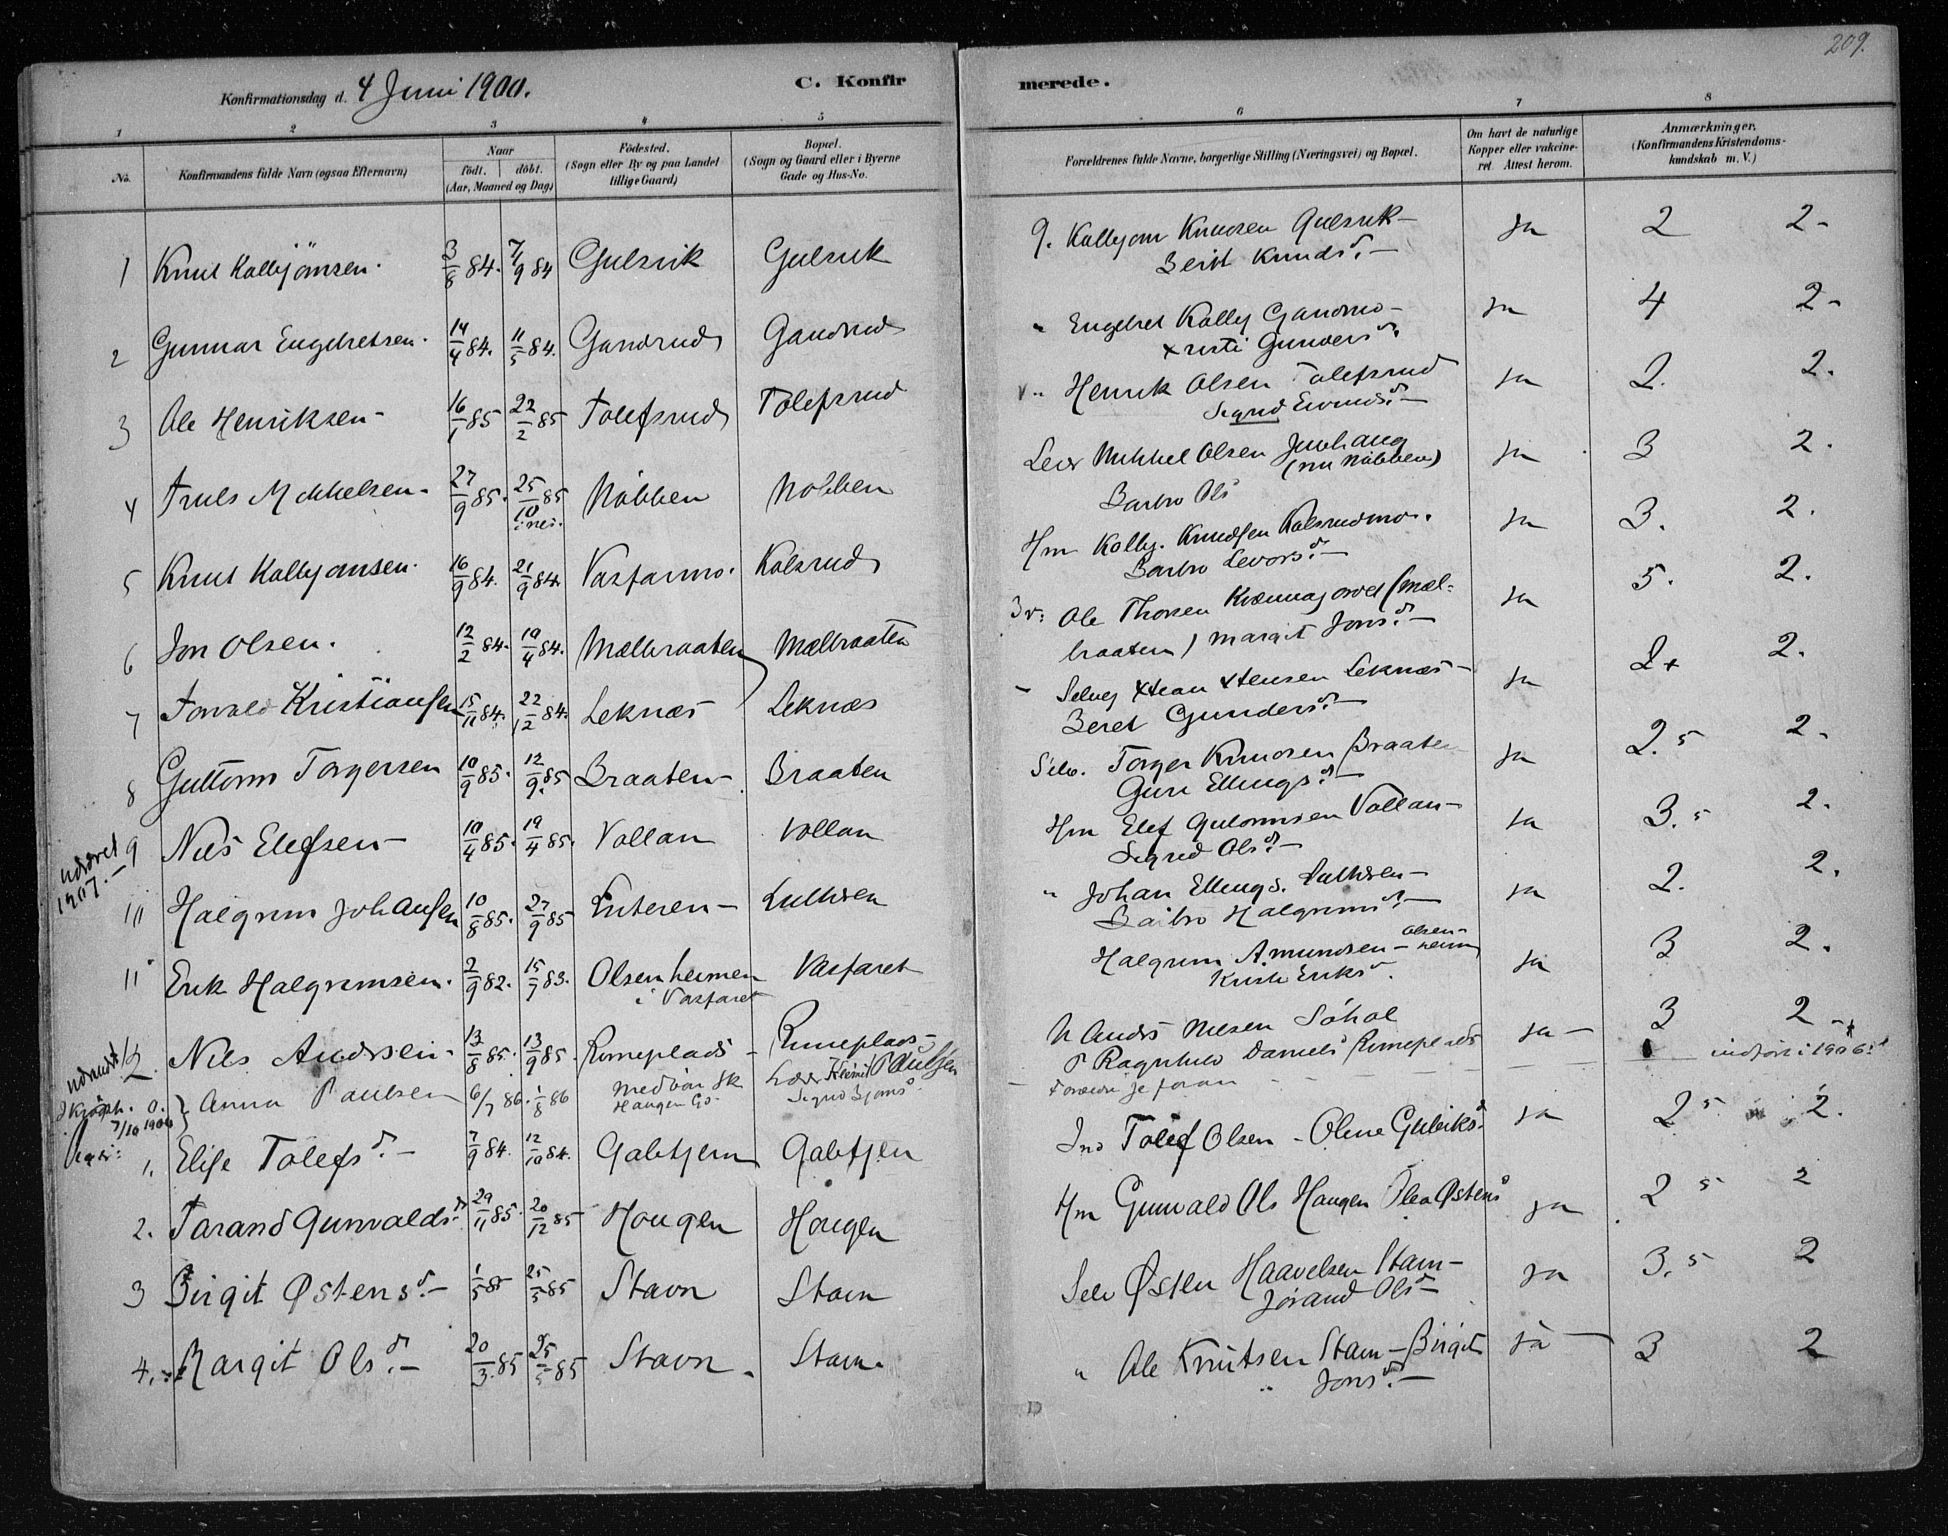 209.
Konfirmationsdag d. 4 Juni 1900. C. Konfirmerede.
1 2 3 4 5 6 7 8
No. Konfirmandens fulde Navn (ogsaa Efternavn) Naar født. døbt. (Aar, Maaned og Dag) Fødested. (Sogn eller By og paa Landet tillige Gaard) Bopæl. (Sogn og Gaard eller i Byerne Gade og Hus-No. Forældrenes fulde Navne, borgerlige Stilling (Næringsvei) og Bopæl. Om havt de naturlige Kopper eller vakcineret. Attest herom. Anmærkninger. (Konfirmandens Kristendomskundskab m. V.)
1 Knut Kolbjørnsen. 3/8 84. 7/9 84 Gulsvik Gulsvik G. Kolbjørn Knudsen Gulsvik – ja 2 2-
Berit Knudsd. –
2 Gunnar Engebretsen. 14/4 84. 11/5 84. Gandrud Gandrud " Engebret Kolbj Gandrud – ja 4 2-
Kristi Gunders d.
3 Ole Henriksen – 16/1 85 22/2 85 Tolefsrud Tolefsrud " Henrik Olsen Tolefsrud ja 2. 2.
Sigrid Eivindsd. –
4 Truls Mikkelsen. 27/9 85. 25/10 85 Nøbben Nobben Lever Mikkel Olsen Juvhaug (nu Nøbben) ja 3 2.
Barbro Ols
5 Knut Kolbjønsen. 16/9 84. 21/9 84. Vasfarmo. Kolsrud Hm Kolbj. Knudsen Kolsrudmo. ja 3. 2.
Barbro Levorsd. –
6 Jon Olsen. 12/2 84. 19/4 84. Mælbraaten Mælbraaten Br: Ole Thorsen Kvennagordet (Mæl- ja 5. 2.
braaten) Margit Jonsd. –
7 Torvald Kristiansen 15/11 84. 22/12 84. Leknæs Leknæs Selvej Xtian Xtensen Leknæs – ja 2+ 2.
Beret Gundersd. –
8 Guttorm Torgersen 10/9 85. 12/9 85 Braaten – Braaten Selv. Torger Knudsen Braaten ja 2.5 2-
Guri Ellingsd. –
udskrevet 1907. – 9 Nils Elefsen – 10/4 85. 19/4 85. Vollan Vollan Hm Elef Gulormsen Vollan – ja 3.5 2.
Sigrid Olsd. –
10 Halgrim Johansen 10/8 85. 27/9 85 Luteren – Luthren " Johan Ellings. Luthren – ja 2. 2.
Barbro Halgrimsd. –
11 Erik Halgrimsen. 2/9 82. 15/7 83. Olsenheimen Vasfaret Halgrim Amundsen – Olsenheim ja 3 2.
i Vasfaret Kristi Eriksd.
12. Nils Andrsen – 13/8 85. 13/9 85. Romeplads – Rimeplads – Andrs Nilsen Søhol ja – 3 2 –
P Ragnhild Daniels Rimeplads indført i 1906
Anna Paulsen 6/7 86. 1/8 86 Haugen Paulsen
7/10 1906
Piger:
1. Elise Tolefsd. – 7/9 84. 12/10 84. Gabtjern Gabtjern Ind Tolef Olsen – Oline Gulviksd ja 2 5 2.
2. Tarand Gunvaldsd. 29/11 85. 20/12 85 Hougen Hougen Hm Gunvald Ols Haugen Olea Østens ja 2 5 2
3 Birgit Østensd. – 1/5 85 25/5 85 Stavn Stavn Selv Østen Haavelsen Stavn – ja 3.5 2
Jørand Olsd –
4. Margit Olsd. – 20/3 85 25/5 85 Stavn. Stavn. " Ole Knutsen Stavn – Birgit ja 3 2
" Jonsd. –